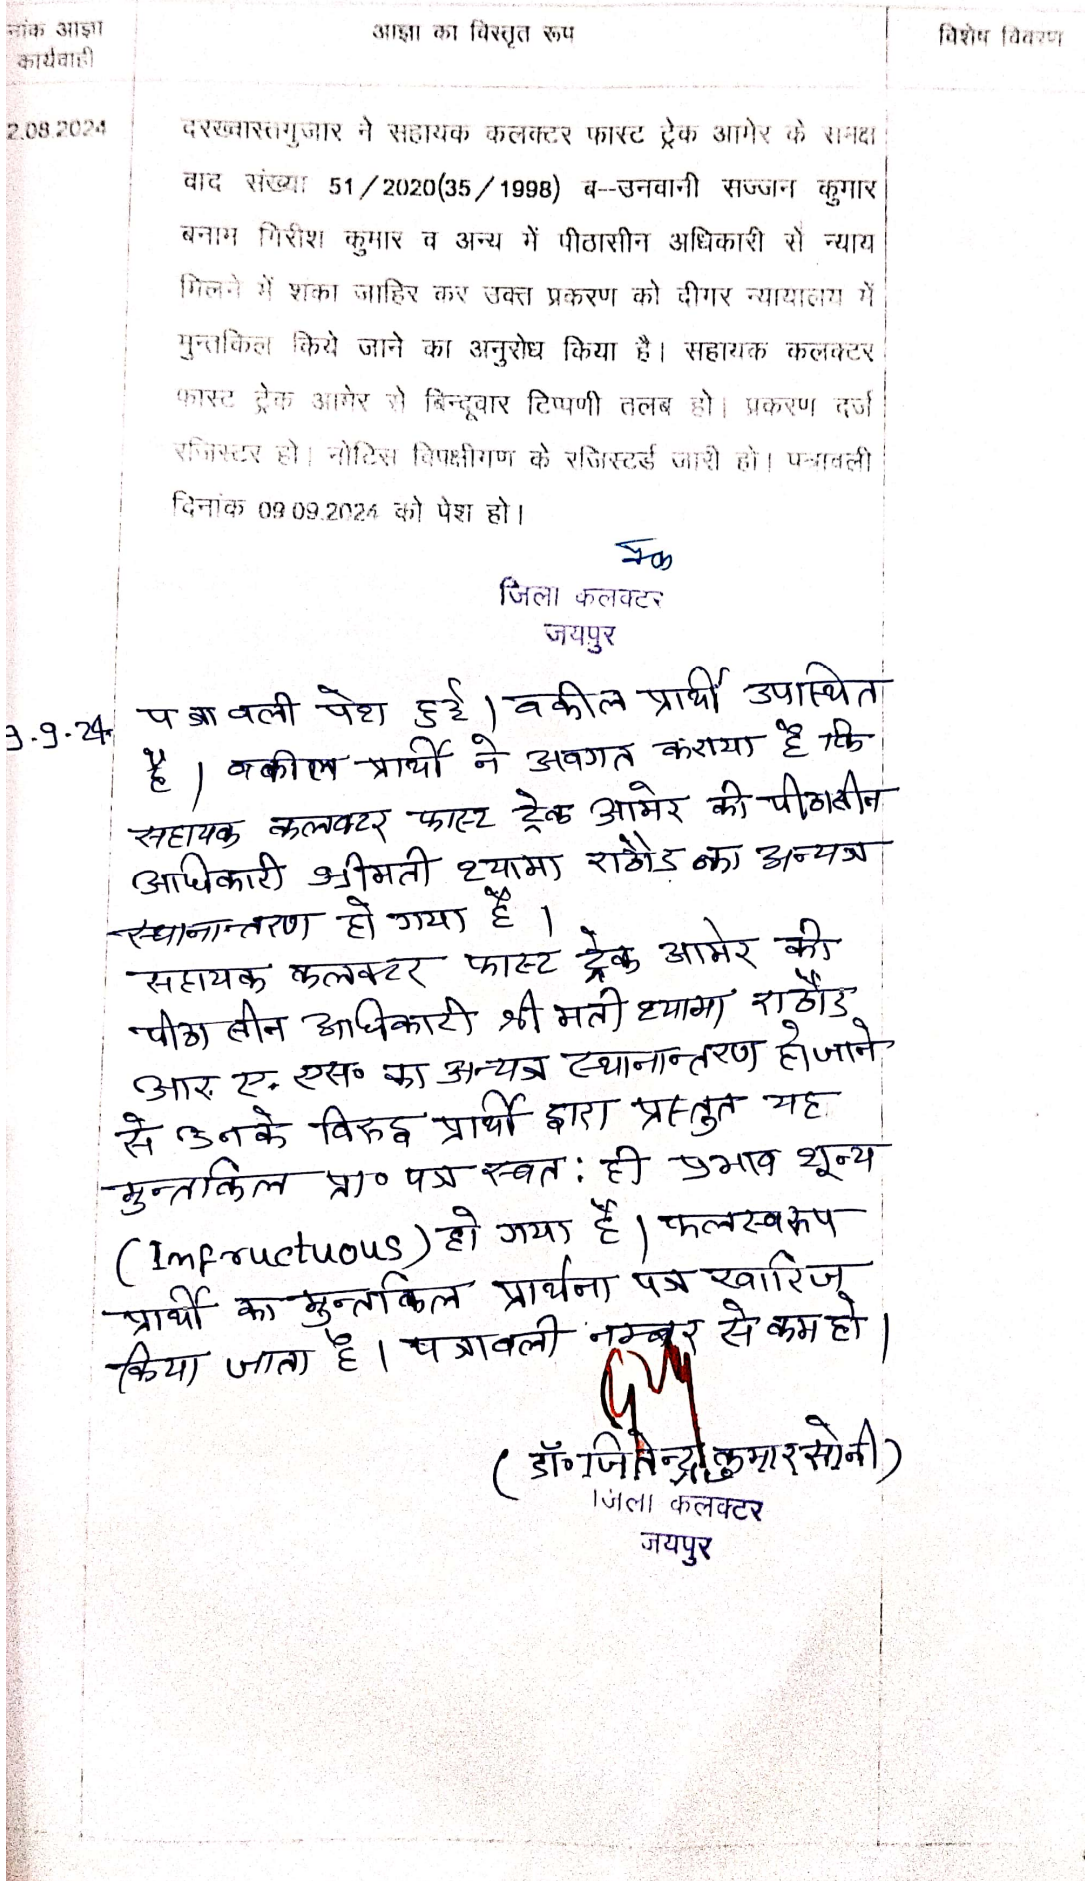 नांक आज्ञा
कार्यवाही
आज्ञा का विस्तृत रूप
विशेष विवरण
2.08.2024
दरख्वास्तगुजार ने सहायक कलक्टर फास्ट ट्रेक आमेर के समक्ष
वाद संख्या 51/2020(35/1998) ब--उनवानी सज्जन कुमार
बनाम गिरीश कुमार व अन्य में पीठासीन अधिकारी से न्याय
मिलने में शंका जाहिर कर उक्त प्रकरण को दीगर न्यायालय में
मुन्तकिल किये जाने का अनुरोध किया है। सहायक कलक्टर
फास्ट ट्रेक आमेर से बिन्दूवार टिप्पणी तलब हो। प्रकरण दर्ज
रजिस्टर हो। नोटिस विपक्षीगण के रजिस्टर्ड जारी हो। पत्रावली
दिनांक 09.09.2024 को पेश हो।
जिला कलक्टर
जयपुर
9.9.24
पत्रावली पेश हुई। वकील प्रार्थी उपास्थित
है। वकील प्रार्थी ने अवगत कराया है कि
सहायक कलक्टर फास्ट ट्रेक आमेर की पीठासीन
आधिकारी श्रीमती श्यामा राठौड का अन्यत्र
स्थानान्तरण हो गया है।
सहायक कलक्टर फास्ट ट्रेक आमेर की
पीठासीन आधिकारी श्रीमती श्यामा राठौड
आर. ए. एस॰ का अन्यत्र स्थानान्तरण हो जाने
से उनके विरुद्ध प्रार्थी द्वारा प्रस्तुत यह
मुन्तकिल प्रा॰ पत्र स्वत: ही प्रभाव शून्य
(Infructuous) हो गया है। फलस्वरूप
प्रार्थी का मुन्तकिल प्रार्थना पत्र खारिज
किया जाता है। पत्रावली नम्बर से कम हो।
(डॉ॰ जितेन्द्र कुमार सोनी)
जिला कलक्टर
जयपुर